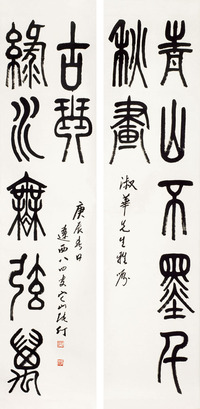 青山不墨千
秋畫
淑華先生雅屬
綠水無弦萬
古琴
庚辰春日
遼西八四叟